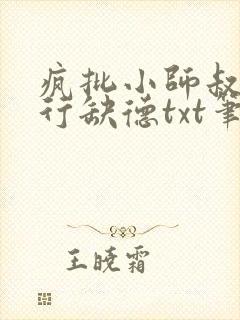 疯批小師叔
行缺德txt筆
王晓霜